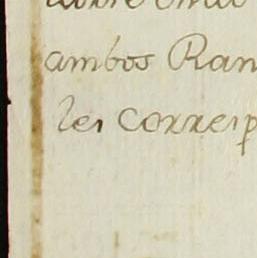 ambos Ran
les corresp